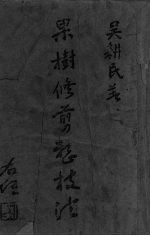 吳耕民著
果樹修剪整枝法
右任